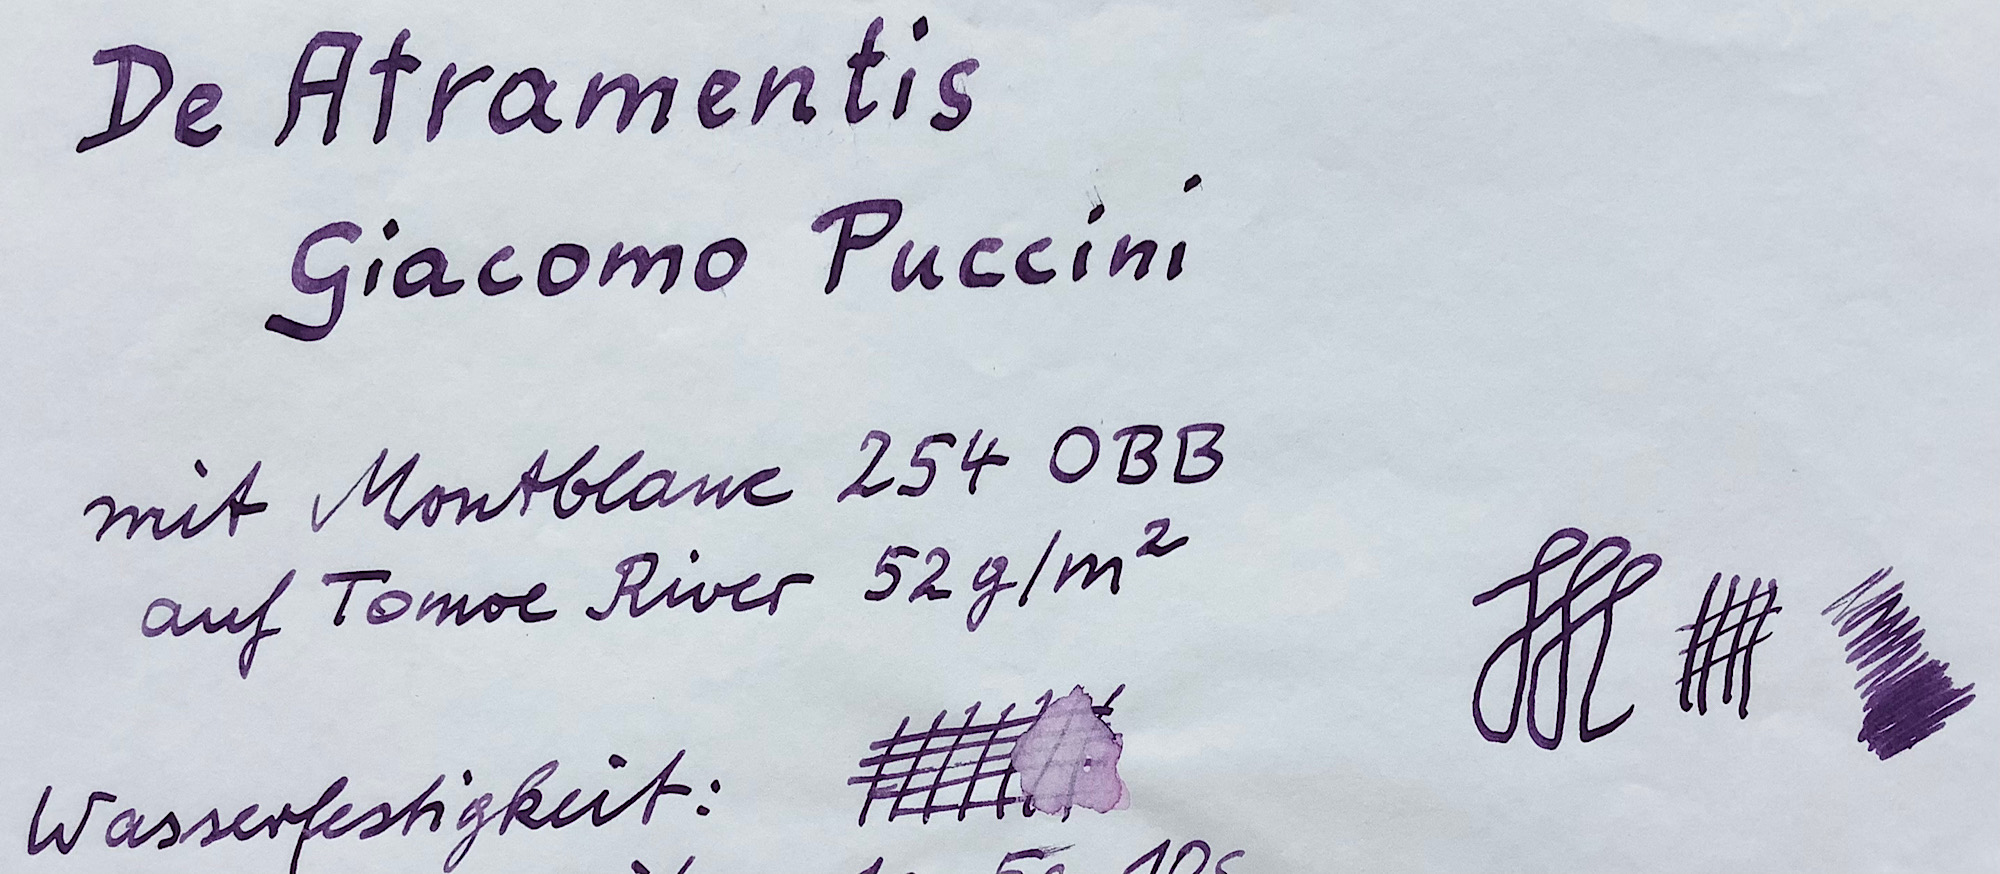 De Atramentis
Giacomo Puccini
mit Montblanc 254 OBB
auf Tomoe River 52g/m²
Wasserfestigkeit:
5s 10s